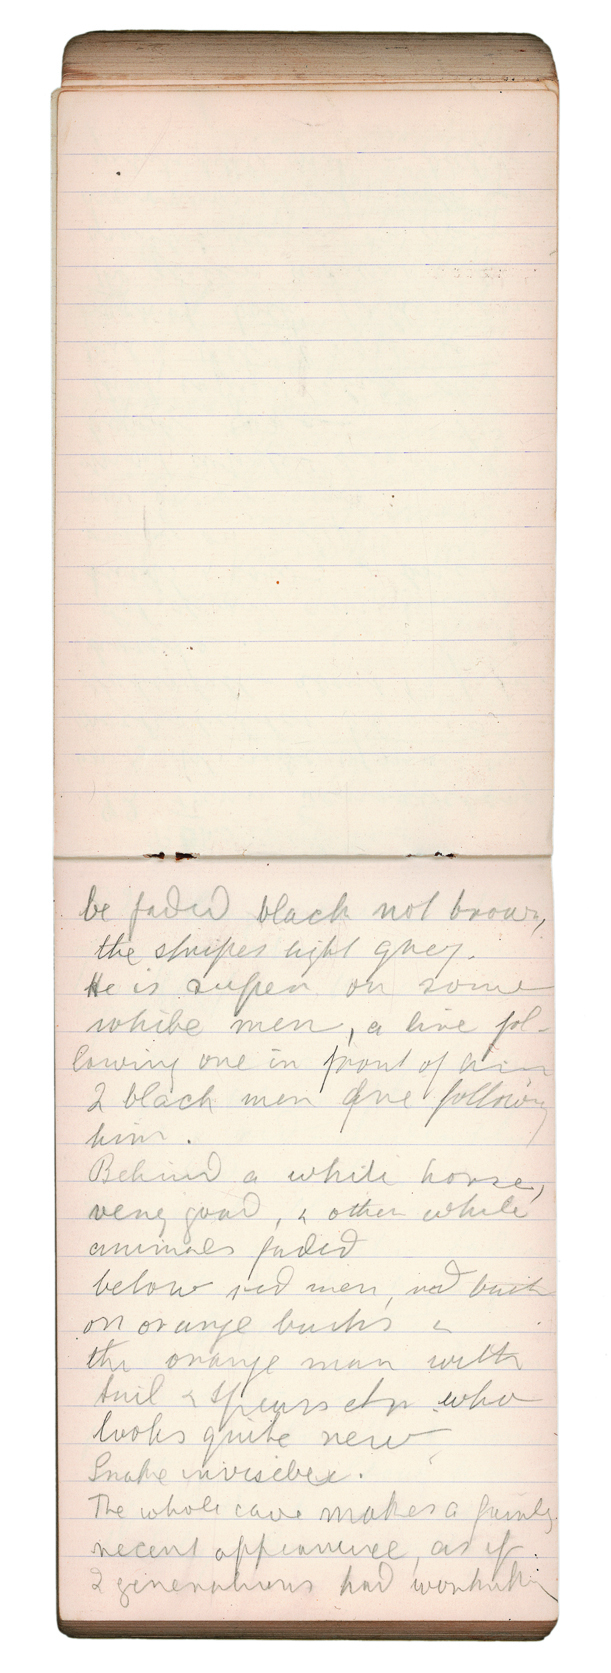 be faded black not brown,
the stripes light grey.
He is super on some
white men, a line fol-
lowing one in front of him
2 black men one following
him.
Behind a white horse,
very good, & other white
animals faded
below red men, red buck
on orange bucks &
the orange man with
tail & spears etc who
looks quite new
Snake invisible.
The whole cave makes a fairly
recent appearance, as if
2 generations had worked